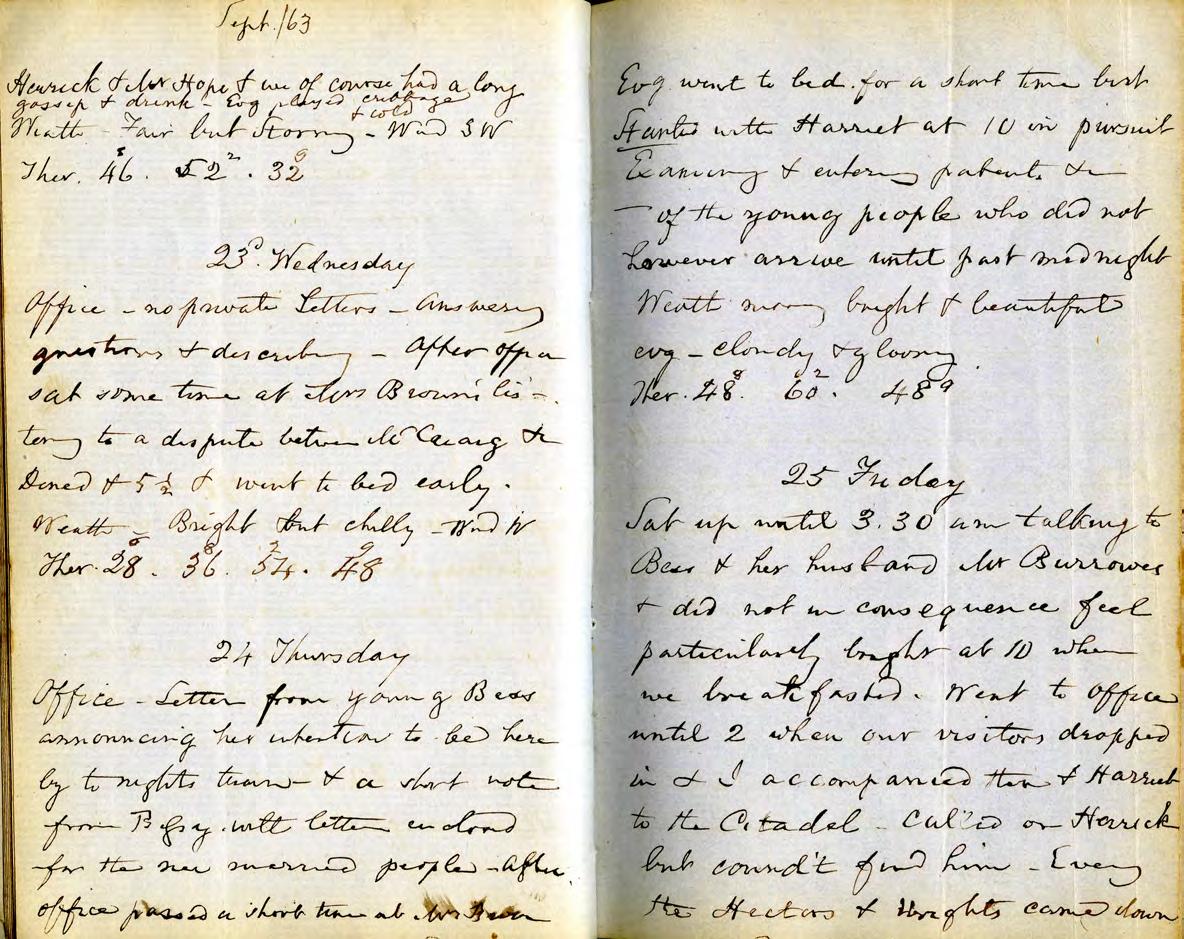 Sept. /63
Herrick & Mr Hope & we of course had a long
gossip & drink - Evg played cribbage
& cold
Weath - Fair but Stormy - Wind SW
Ther. 46. 52. 32
23d. Wednesday
Office - no private Letters - Answering
questions & describing - After office
sat some time at Mrs Brown's lis-
tening to a dispute between McCuaig &c
Dined & 5½ & went to bed early.
Weath - Bright but chilly - Wind W
Ther. 28. 36. 54. 48
24 Thursday
Office - Letter from young Bess
announcing her intention to be here
by to nights train - & a short note
from Betsy. with letter enclosed
for the new married people - After
office passed a short time at Mrs Brown
Evg went to bed for a short time but
Started with Harriet at 10 in pursuit
Examining & entering patents &c
- of the young people who did not
however arrive until past midnight
Weath morng bright & beautiful
evg - cloudy & gloomy
Ther. 48. 60. 48
25 Friday
Sat up until 3.30 am talking to
Bess & her husband Mr Burrowes
& did not in consequence feel
particularly bright at 10 when
we breakfasted. Went to office
until 2 when our visitors dropped
in & I accompanied them & Harriet
to the Citadel - Called on Herrick
but counn't find him - Eveng
the Hectors & Wrights came down